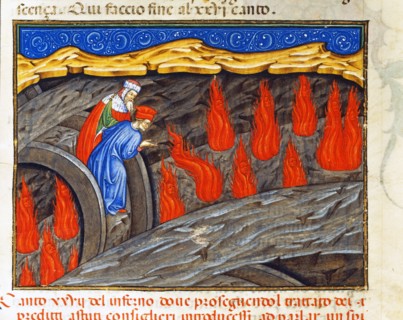 scença. Qui faccio fine al xxvi canto.
Canto xxvii del inferno doue proseguendo l trattato del
prediti astuti consiglieri introducesti ad parlar un spi